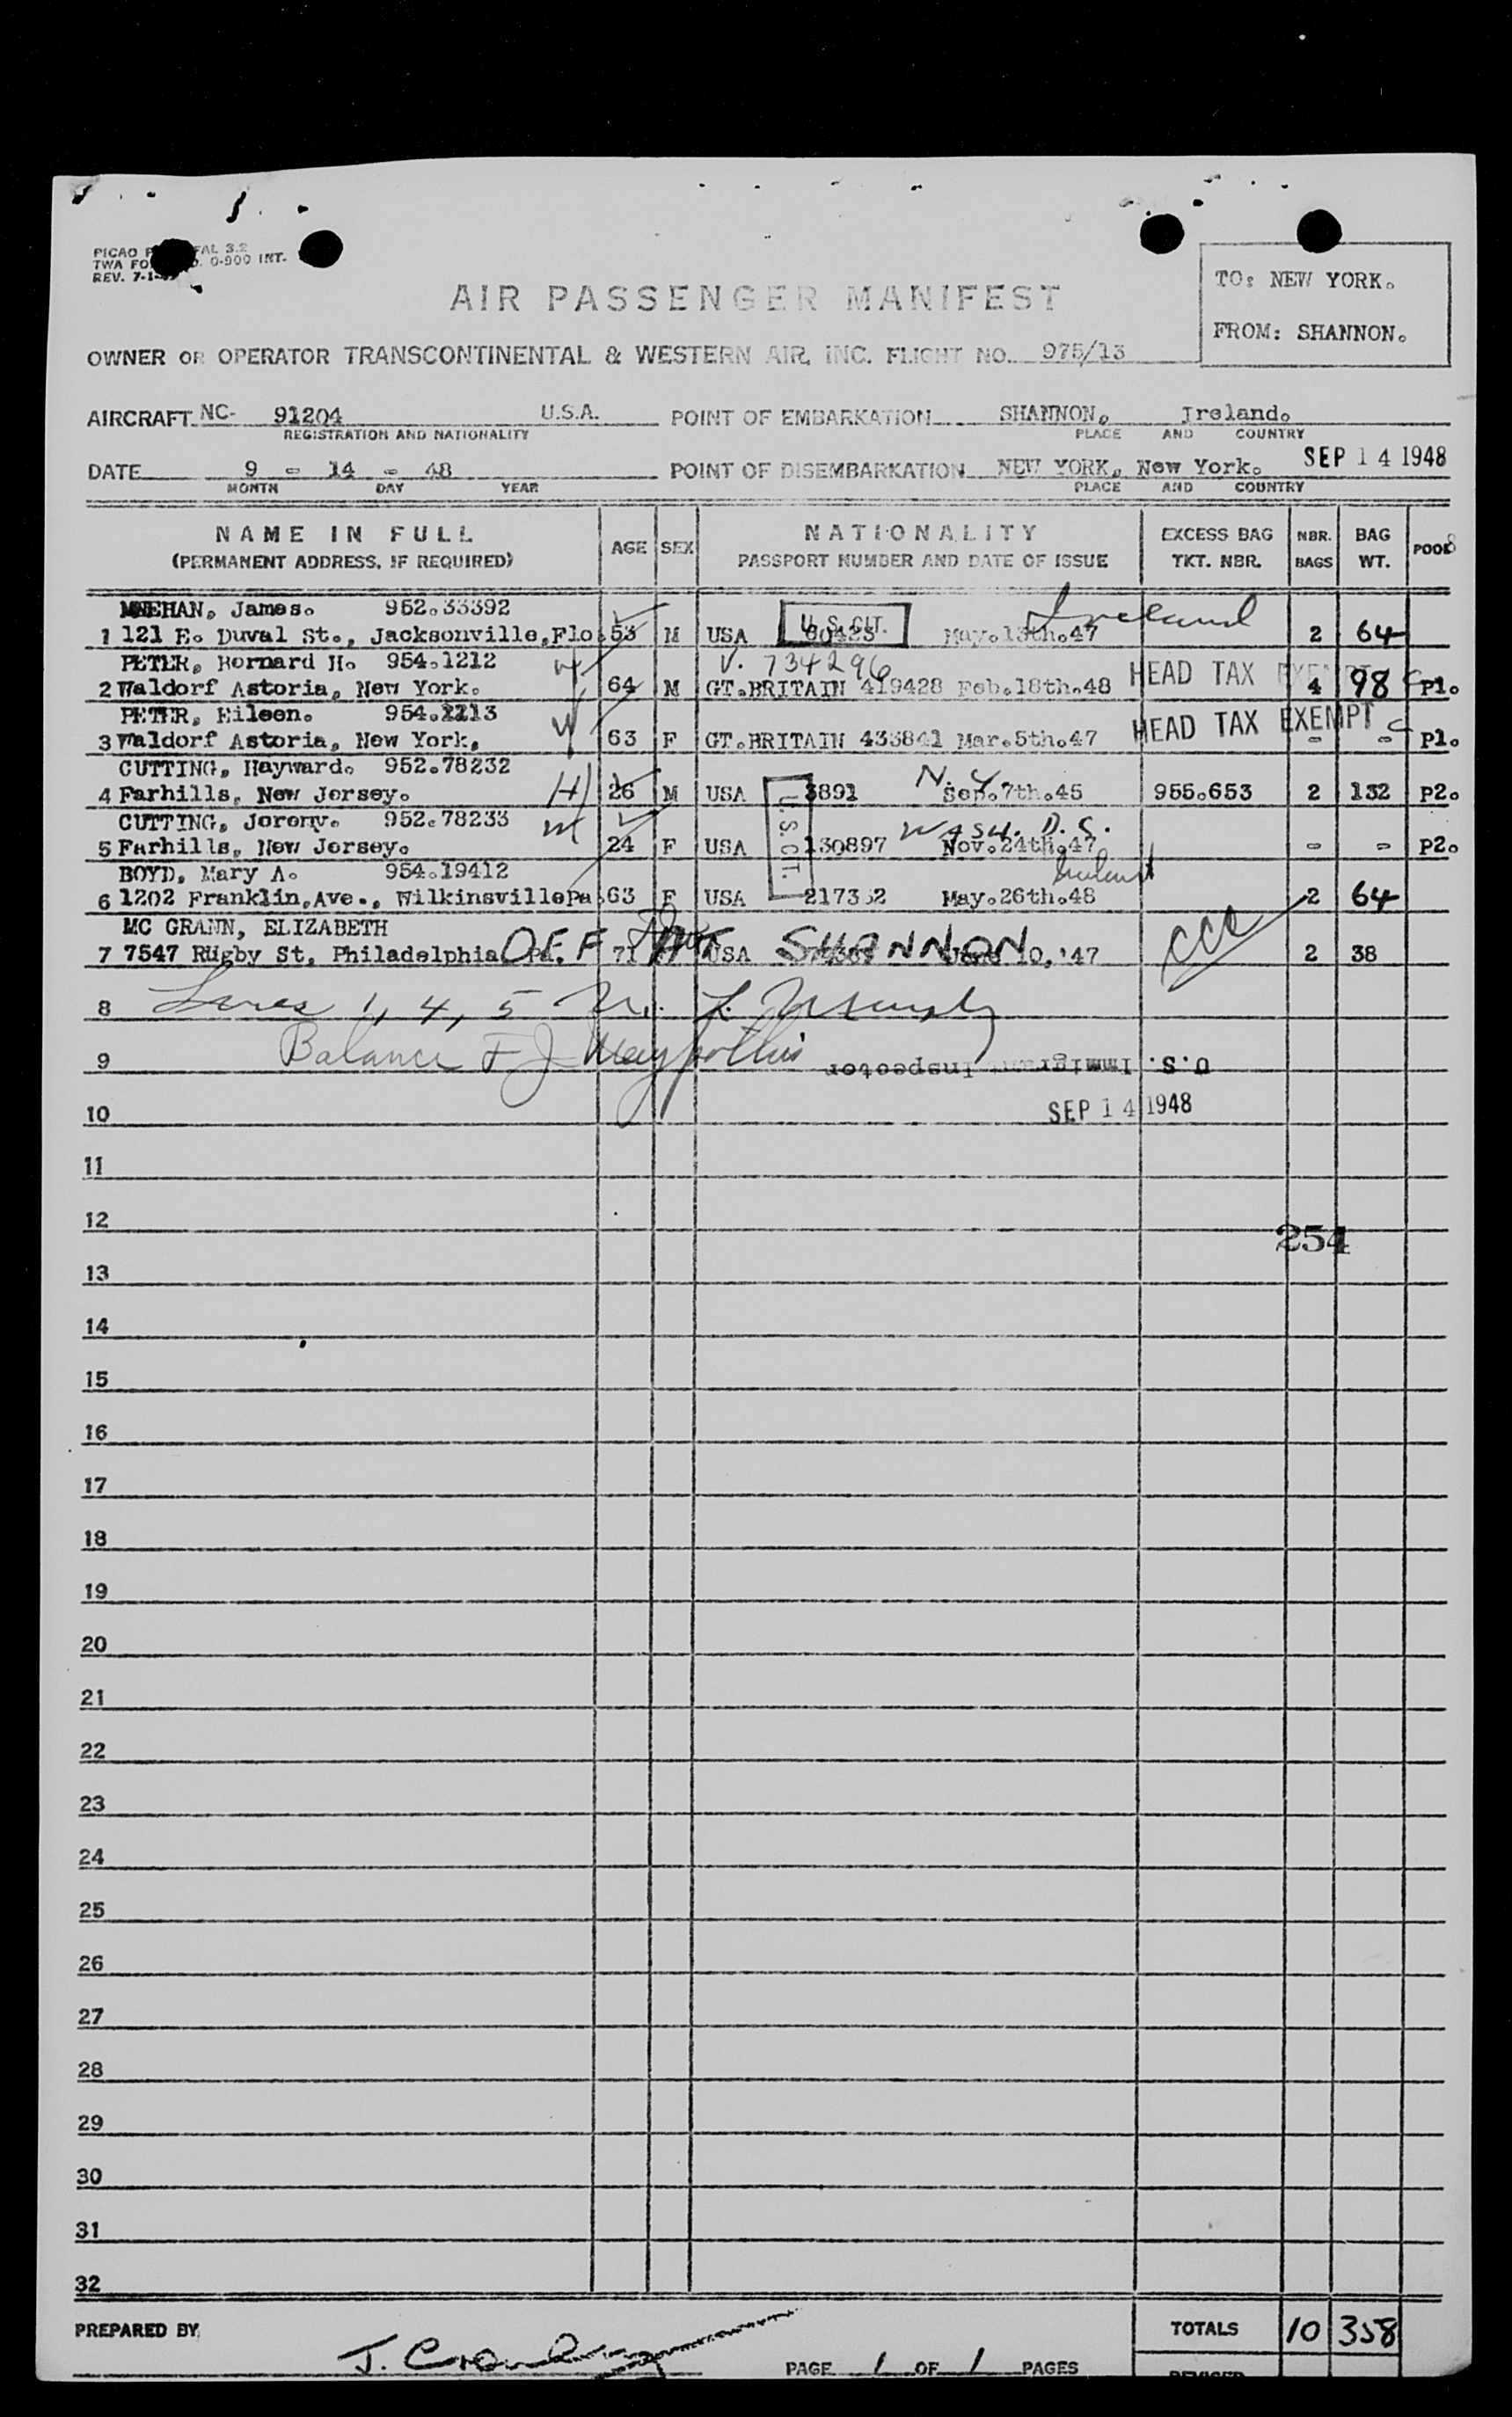 PICAO P FAL 3.2
TWA FO O. 0-900 INT.
REV. 7-1-
TO: NEW YORK.
FROM: SHANNON.
AIR PASSENGER MANIFEST
OWNER OR OPERATOR TRANSCONTINENTAL & WESTERN AIR, INC. FLIGHT NO. 975/13
AIRCRAFT NC- 91204 U.S.A. POINT OF EMBARKATION SHANNON, Ireland.
REGISTRATION AND NATIONALITY PLACE AND COUNTRY
DATE 9 - 14 - 48 POINT OF DISEMBARKATION NEW YORK, New York. SEP 14 1948
MONTH DAY YEAR PLACE AND COUNTRY
NAME IN FULL AGE SEX NATIONALITY EXCESS BAG NBR. BAG POOL
(PERMANENT ADDRESS, IF REQUIRED) PASSPORT NUMBER AND DATE OF ISSUE TKT. NBR. BAGS WT.
MEEHAN, James. 952.33392 U.S. CIT. Ireland
1 121 E. Duval St., Jacksonville,Flo. 53 M USA 60423 May.13th.47 2 64
PETER, Bernard H. 954.1212 V. 734296 HEAD TAX EXEMPT
2 Waldorf Astoria, New York. 64 M GT.BRITAIN 419428 Feb.18th.48 4 98 P1.
PETER, Eileen. 954.1213 HEAD TAX EXEMPT
3 Waldorf Astoria, New York, 63 F GT.BRITAIN 433841 Mar.5th.47 - - P1.
CUTTING, Hayward. 952.78232 N.Y.
4 Farhills, New Jersey. 26 M USA 3891 Sep.7th.45 955.653 2 132 P2.
CUTTING, Jeremy. 952.78233 U.S. CIT. WASH. D.C.
5 Farhills, New Jersey. 24 F USA 130897 Nov.24th.47 - - P2.
BOYD, Mary A. 954.19412 Ireland
6 1202 Franklin,Ave., WilkinsvillePa. 63 F USA 217352 May.26th.48 2 64
MC GRANN, ELIZABETH
7 7547 Rugby St, Philadelphia Pa. 71 USA June 10,'47 2 38
OFF AT SHANNON
8 Lines 1, 4, 5
9 Balance
U.S. Immigrant Inspector
10 SEP 14 1948
11
12
254
13
14
15
16
17
18
19
20
21
22
23
24
25
26
27
28
29
30
31
32
PREPARED BY TOTALS 10 358
PAGE 1 OF 1 PAGES